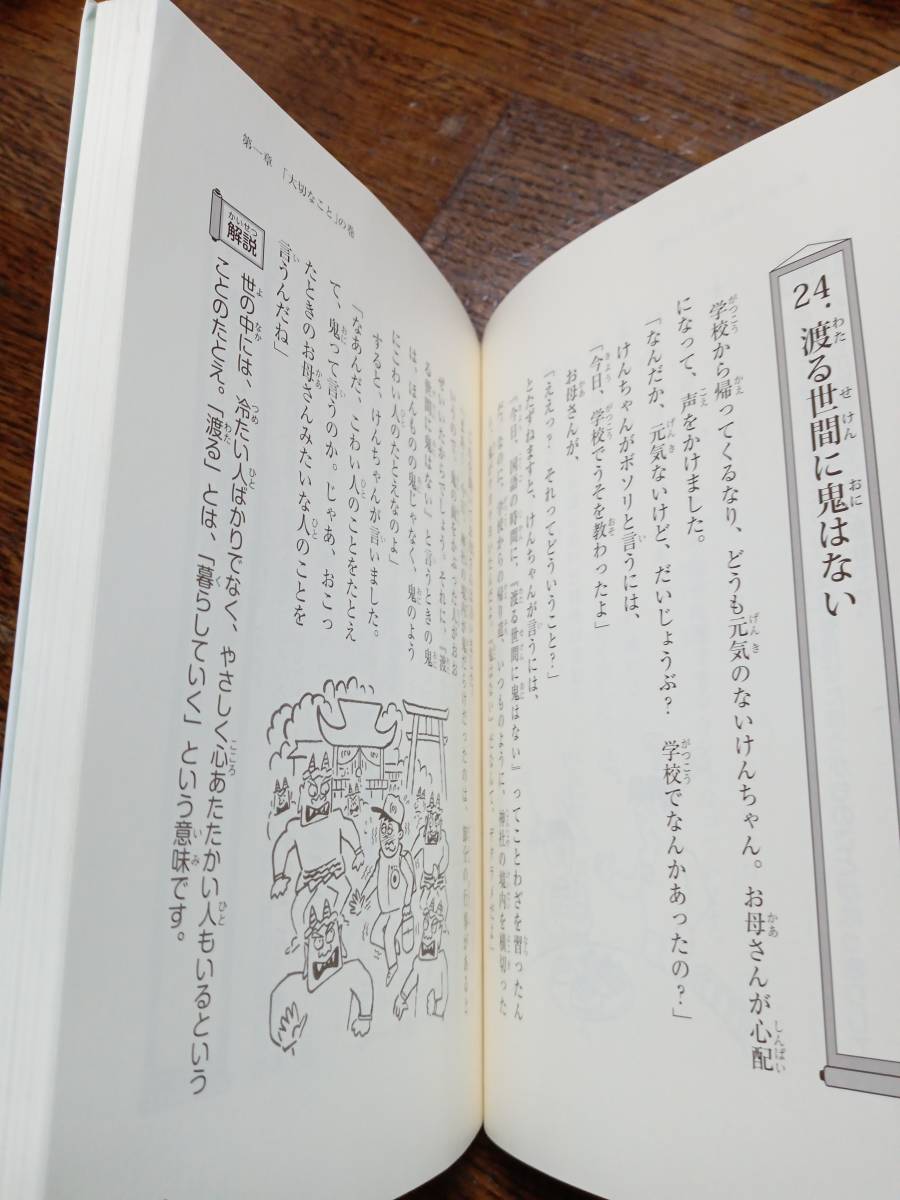 24. 渡る世間に鬼はない
学校から帰ってくるなり、どうも元気のないけんちゃん。お母さんが心配
になって、声をかけました。
「なんだか、元気ないけど、だいじょうぶ? 学校でなんかあったの?」
けんちゃんがボソリと言うには、
「今日、学校でうそを教わったよ」
お母さんが、
「ええっ? それってどういうこと?」
とたずねますと、けんちゃんが言うには、
「今日、国語の時間に、『渡る世間に鬼はない』ってことわざを習ったん
だ。なのに、学校からの帰り道、いつものように、神社の境内を横切った
る世間に鬼はない』と言うときの鬼
は、ほんものの鬼じゃなく、鬼のよう
にこわい人のたとえなのよ」
すると、けんちゃんが言いました。
「なあんだ、こわい人のことをたとえ
て、鬼って言うのか。じゃあ、おこっ
たときのお母さんみたいな人のことを
言うんだね」
解説
世の中には、冷たい人ばかりでなく、やさしく心あたたかい人もいるという
ことのたとえ。「渡る」とは、「暮らしていく」という意味です。
第一章 「大切なこと」の巻